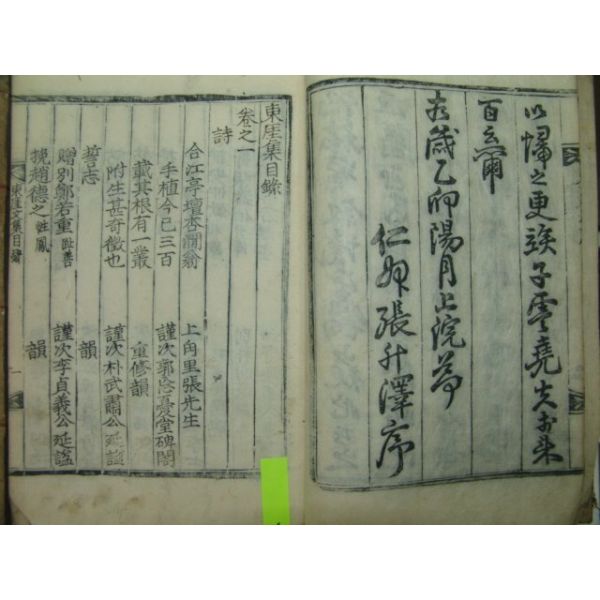 以歸之更竢子雲堯夫於來
百爾
歲乙卯陽月上浣
仁州張升澤序
東厓集目錄
卷之一
詩
合江亭壇杏澗翁
手植今已三百
載其根有一叢
附生甚奇徵也
上角里張先生
謹次郭忘憂堂碑閣
重修韻
謹次朴武肅公延諡
韻
誓志
贈別鄭若重
謹次李貞義公延諡
韻
挽趙德之
東厓文集目錄
一